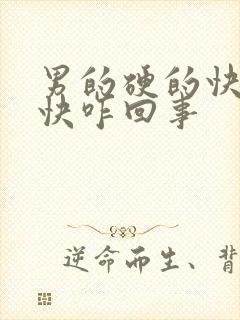 男的硬的快
快咋回事
逆命而生、背